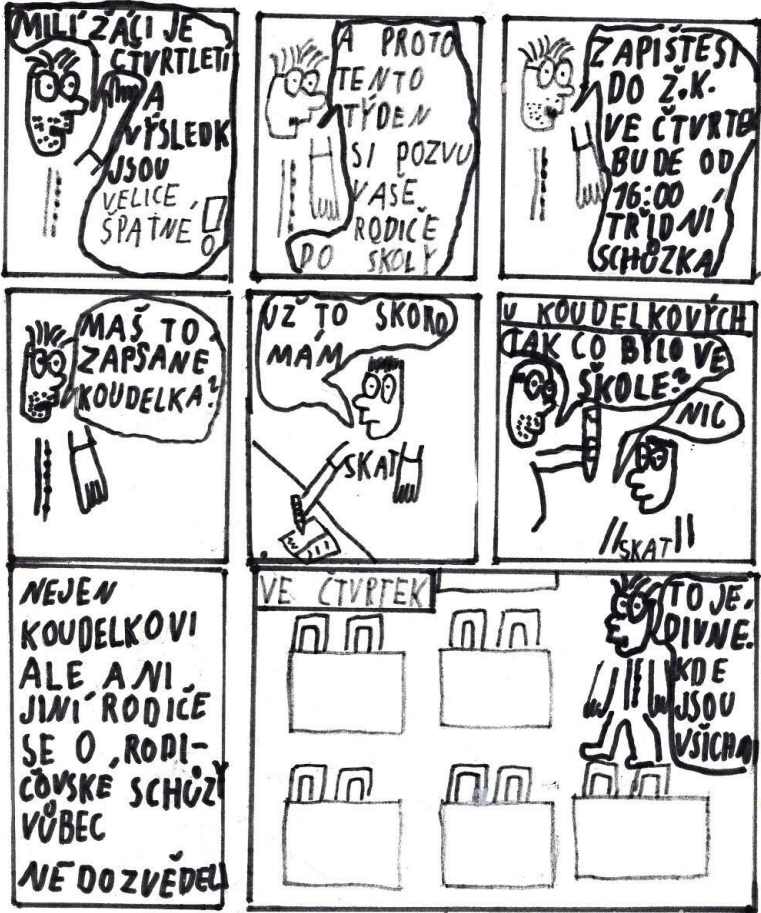 MILÍ ŽÁCI JE
ČTVRTLETÍ
A
VÝSLEDK
JSOU
VELICE
ŠPATNÉ!
A PROTO
TENTO
TÝDEN
SI POZVU
VAŠE
RODIČE
DO ŠKOLY
ZAPIŠTESI
DO Ž.K.
VE ČTVRTEK
BUDE OD
16:00
TŘIDNÍ
SCHŮZKA
MAŠ TO
ZAPSANE
KOUDELKA?
UŽ TO SKORO
MÁM
SKAT
U KOUDELKOVÝCH
TAK CO BYLO VE
ŠKOLE?
NIC
SKAT
NEJEN
KOUDELKOVI
ALE ANI
JINÍ RODIČE
SE O RODI-
ČOVSKÉ SCHŮZY
VŮBEC
NEDOZVĚDELI
VE ČTVRTEK
TO JE
DIVNE.
KDE
JSOU
VŠICHNI